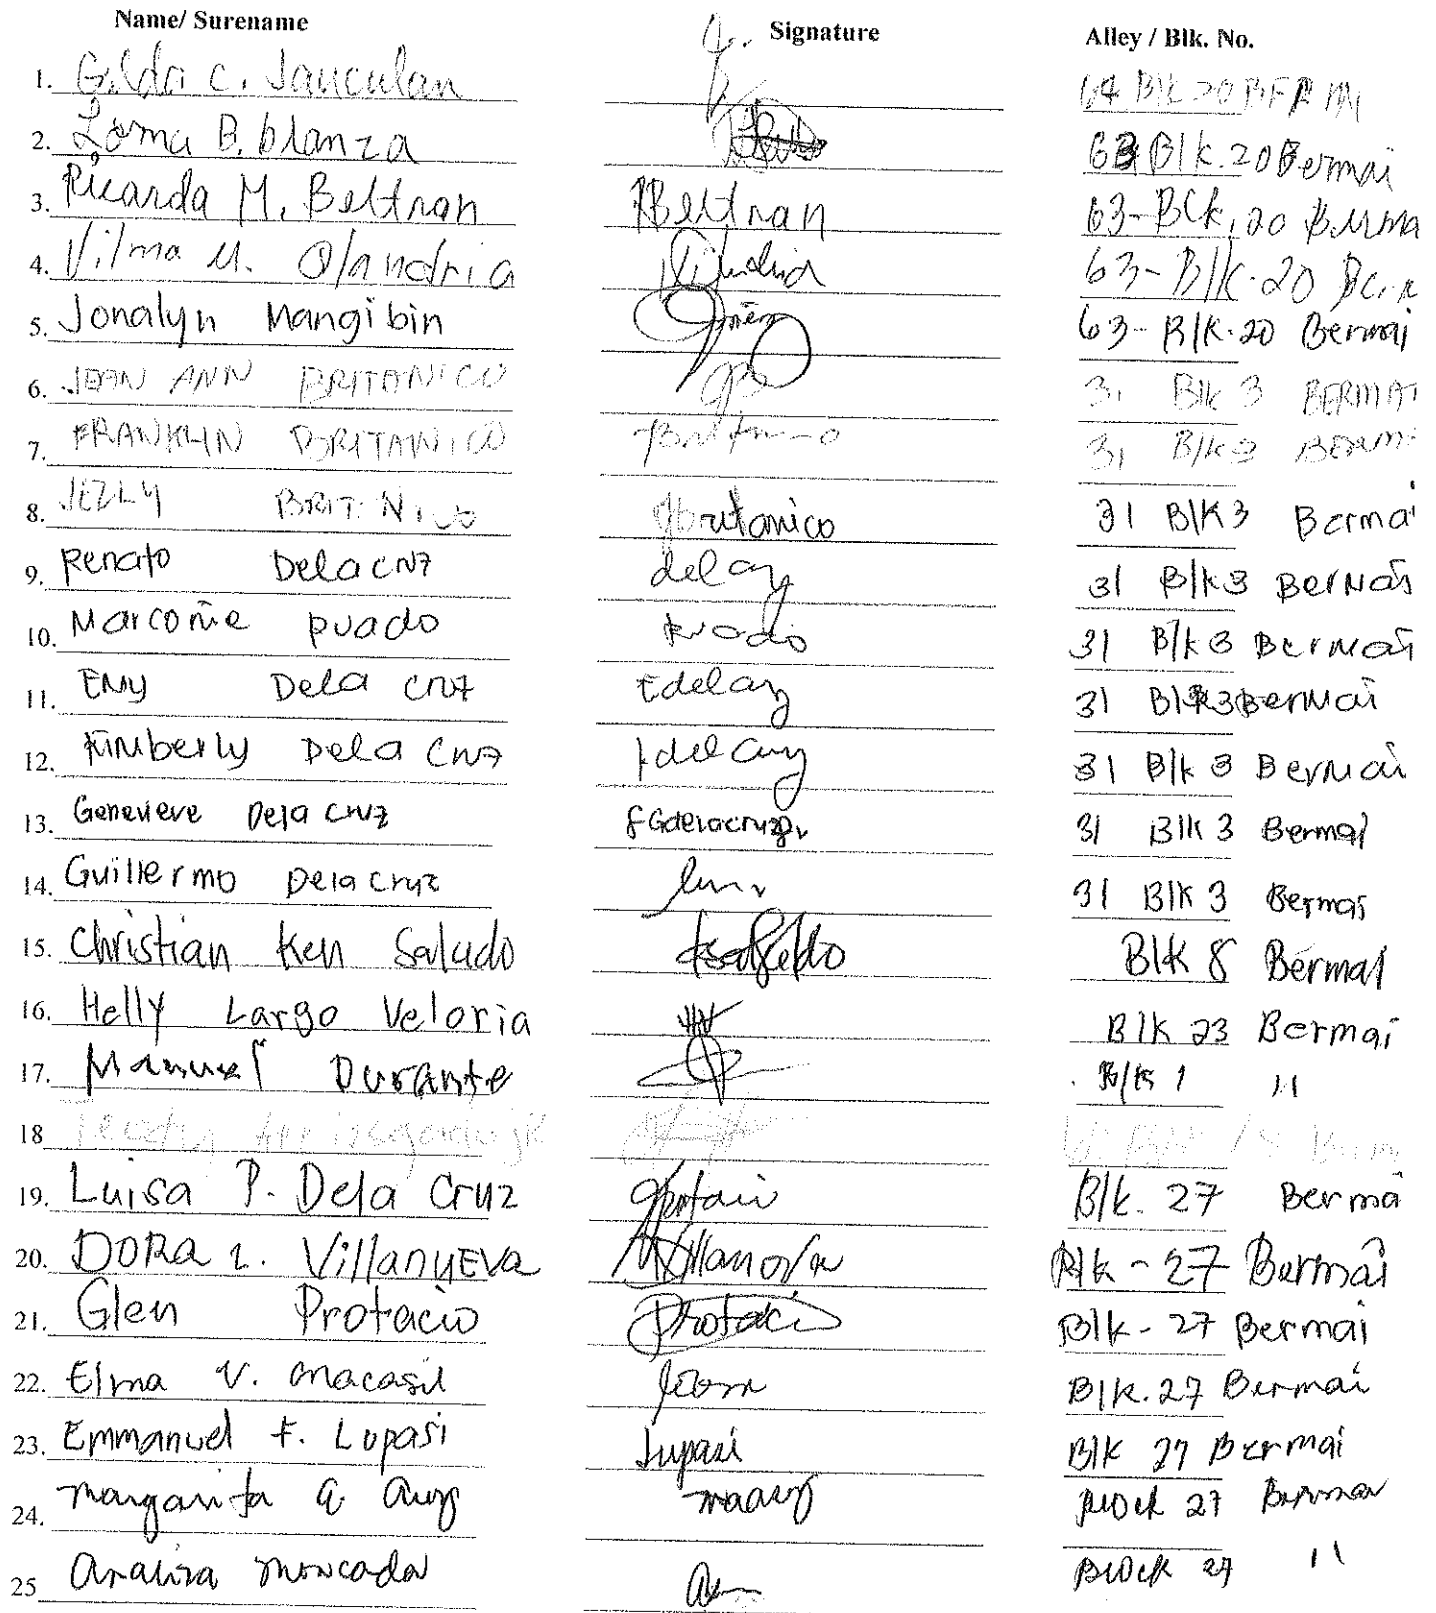 Name/ Surename Signature Alley / Blk. No.
1. Gilda C. Jauculan 64 Blk 20
2. Lorna B. blanza 63 Blk.20 Bermai
3. Ricarda M. Beltran RBeltran 63-Bck,20
4. Vilma M. Olandria 63-Blk.20
5. Jonalyn Mangibin 63-Blk.20 Bermai
6. JEAN ANN BRITANICO 31 Blk 3 BERMAI
7. FRANKLIN BRITANICO 31 Blk 3
8. JEZLY 31 Blk3 Bermai
9. Renato Dela cruz 31 Blk3 Bermai
10. Marcoñe puado 31 Blk 3 Bermai
11. Emy Dela cruz Edelacruz 31 Blk3 Bermai
12. Kimberly Dela Cruz 31 Blk 3 Bermai
13. Genevieve Dela cruz 31 Blk 3 Bermai
14. Guillermo Dela cruz 31 Blk 3 Bermai
15. Christian Ken Saludo Blk 8 Bermai
16. Helly Largo Veloria Blk 23 Bermai
17. Manuel Durante Blk 1 "
18
19. Luisa P. Dela Cruz Blk. 27 Bermai
20. DORA L. VillanuEva Villanueva Blk - 27 Bermai
21. Glen Protacio Protacio Blk - 27 Bermai
22. Elma V. macasil Blk.27 Bermai
23. Emmanuel F. Lupasi Lupasi Blk 27 Bermai
24. margarita Block 27 Bermai
25 analiza moncada Block 27 "